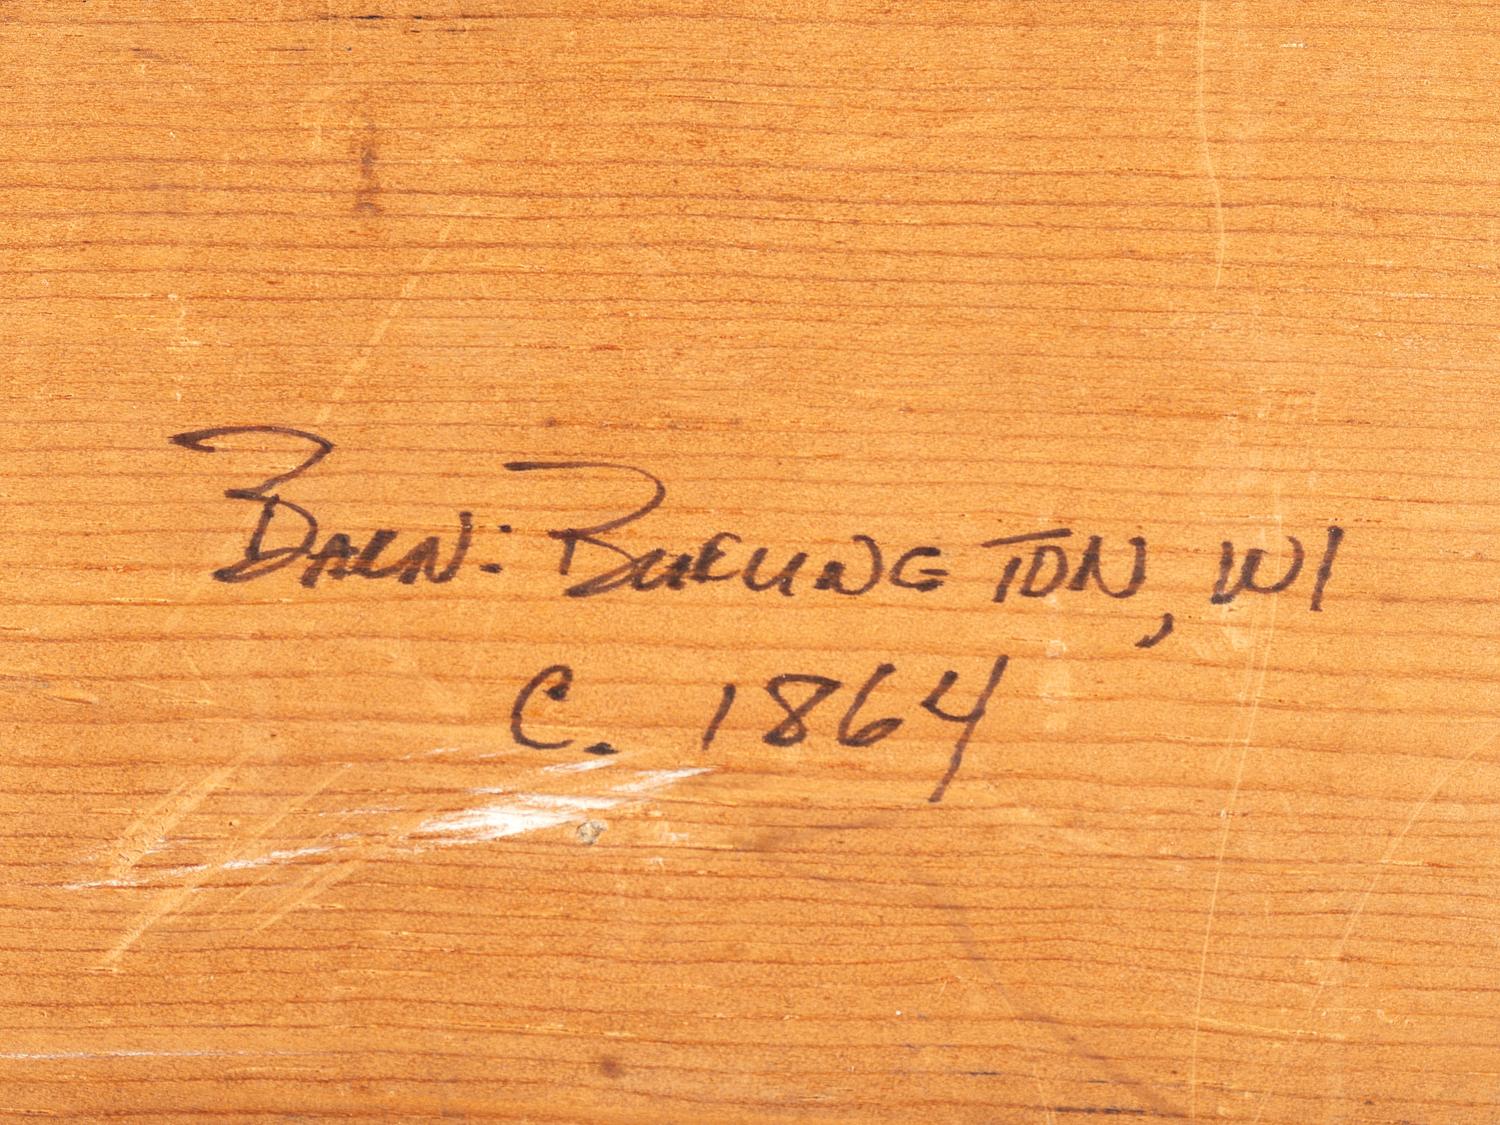 BARN: BURLINGTON, WI
C. 1864